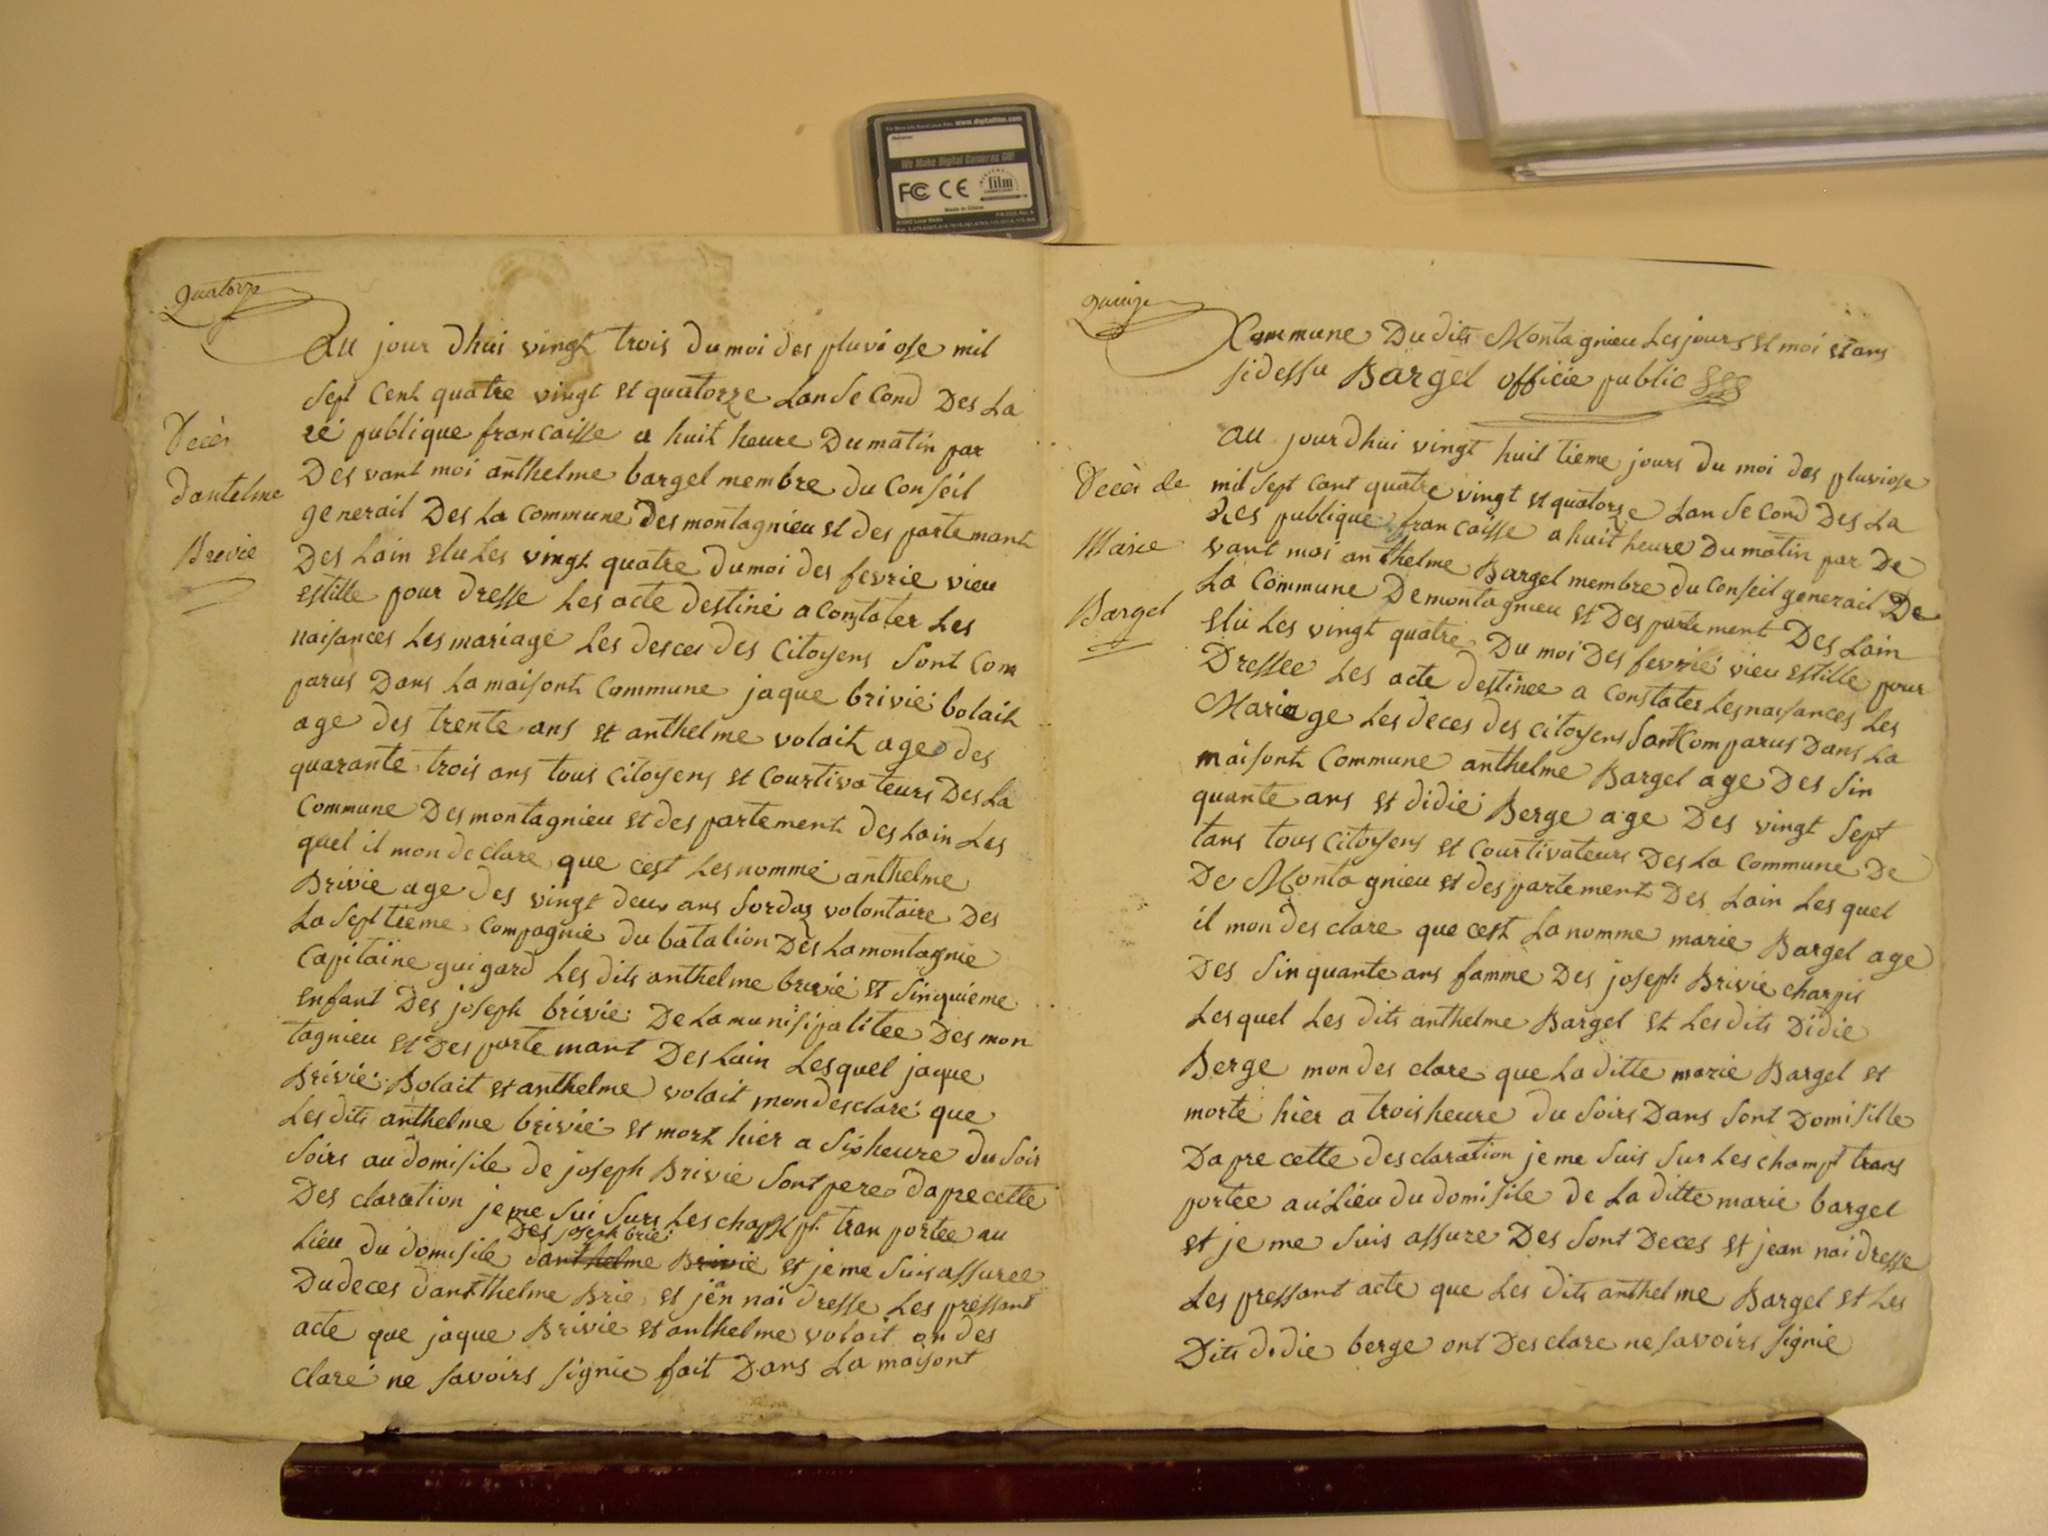 www.digitalfilm.com
We Make Digital Cameras Go!
FC CE film
Made in China
quatorze
Au jour dhui vingt trois du moi des pluviose mil
sept cent quatre vingt et quatorze Lan second Des La
ré publique francaisse a huit heure Du matin par
Des vant moi anthelme bargel membre du Conseil
generail Des La commune Des montagnieu et des partemant
Des Lain elu Les vingt quatre du moi des fevrie vieu
estille pour dresse Les acte destiné a constater Les
naisances Les mariage Les desces des Citoyens sont com
parus Dans La maisont Commune jaque brivié bolait
age des trente ans et anthelme volait age des
quarante trois ans tous citoyens et Courtivateurs Des La
Commune Des montagnieu et des partement des Lain Les
quel il mon de clare que cest Les nommé anthelme
Brivie age des vingt deux ans sordaz volontaire Des
La septieme compagnie du batalion Des La montagnie
Capitaine guigard Les dits anthelme brivié et sinquieme
enfant Des joseph brivié De La munisipalitee Des mon
tagnieu et Des parte mant Des Lain Lesquel jaque
Brivié Bolait et anthelme volait mon desclaré que
Les dits anthelme brivié et mort hier a six heure du soir
soirs au domisile de joseph Brivie sont pere dapre cette
Des claration je me sui surs Les champt tran portee au
Des joseph brié
Lieu du domisile danthelme Brivié et je me suis assuree
Du deces dantthelme Brie et jean nai dresse Les pressant
acte que jaque Brivie et anthelme volait on des
claré ne savoirs signie fait Dans La maisont
Decès
dantelme
Brevie
quinze
Commune Du dits Montagnieu Les jours et moi et ans
sidessu Bargel officie public
au jourdhui vingt huit tieme jours du moi des pluviose
mil sept cant quatre vingt et quatorze Lan second Des La
Res publique francaisse a huit heure Du matin par De
vant moi anthelme Bargel membre du Conseil generail De
La Commune De montagnieu et Des partement Des Lain
elu Les vingt quatre Du moi Des fevrié vieu estille pour
Dressee Les acte destinee a constater Les naisances Les
Mariage Les deces des citoyens sont Comparus Dans La
maisont Commune anthelme Bargel age Des sin
quante ans et didie Berge age Des vingt sept
tans tous citoyens et Courtivateurs Des La Commune De
De Montagnieu et des partement Des Lain Les quel
il mon des clare que cest La nomme marie Bargel age
Des sinquante ans famme Des joseph Brivie charpis
Lesquel Les dits anthelme Bargel et Les dits Didie
Berge mon des clare que La ditte marie Bargel et
morte hier a trois heure du soirs Dans sont Domisille
Dapre cette desclaration je me suis sur Les champt trans
portee au Lieu du domisile de La ditte marie bargel
et je me suis assure Des sont Deces et jean nai dresse
Les pressant acte que Les dits anthelme Bargel et Les
Dits didie berge ont Des clare ne savoirs signie
Decès de
Marie
Bargel